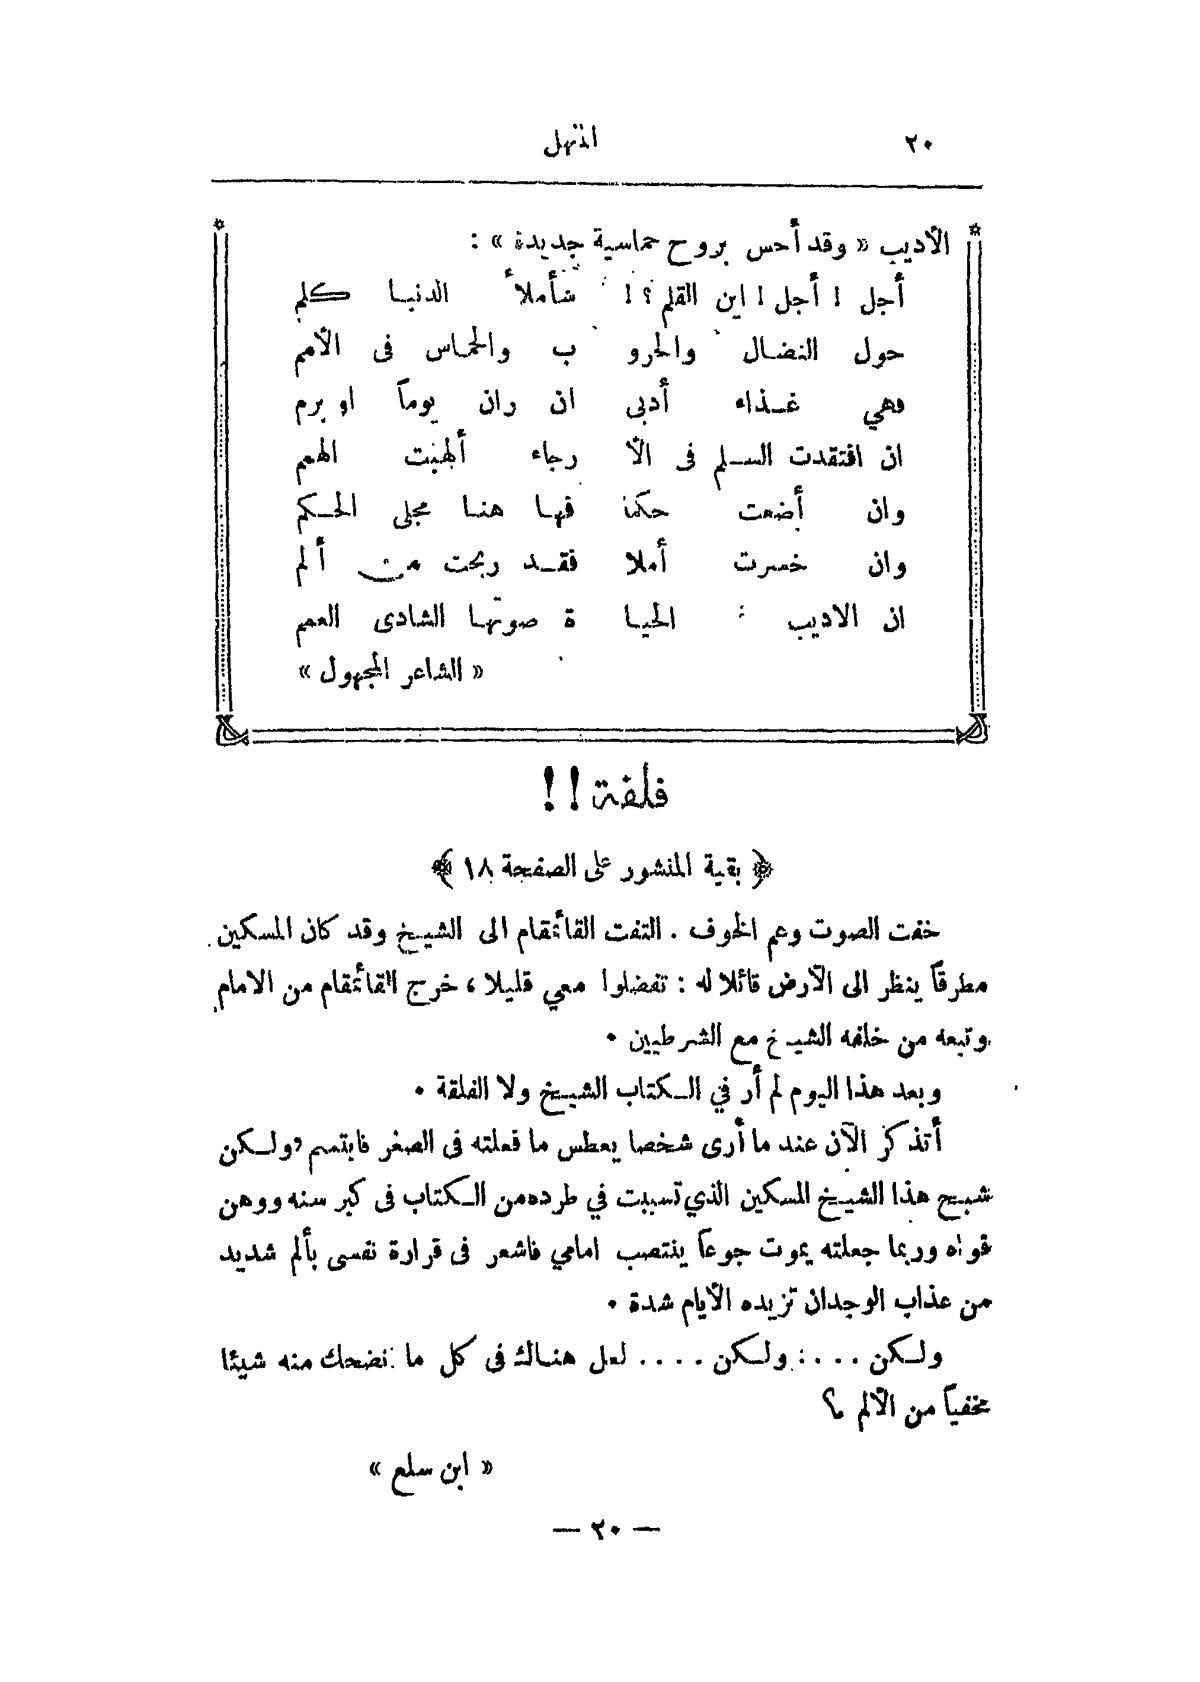 ٢٠ المنهل
الأديب « وقد أحس بروح حماسية جديدة » :
أجل ! أجل ! اين القلم ؟ ! سأملأ الدنيا كلم
حول النضال والحرو ب والحماس فى الأمم
وهي غذاء أدبى ان ران يوماً او برم
ان افتقدت السلم فى الأ رجاء ألهبت الهمم
وان أضعت حكما فيها هنا مجلى الحكم
وان خسرت أملا فقد ربحت من ألم
ان الاديب : الحيا ة صوتها الشادى العمم
« الشاعر المجهول »
فلقة !!
﴿ بقية المنشور على الصفحة ١٨ ﴾
خفت الصوت وعم الخوف . التفت القائمقام الى الشيخ وقد كان المسكين
مطرقاً ينظر الى الأرض قائلا له : تفضلوا معي قليلا ، خرج القائمقام من الامام
وتبعه من خلفه الشيخ مع الشرطيين .
وبعد هذا اليوم لم أر في الكتاب الشيخ ولا الفلقة .
أتذكر الآن عند ما أرى شخصا يعطس ما فعلته فى الصغر فابتسم ولكن
شبح هذا الشيخ المسكين الذي تسببت في طرده من الكتاب فى كبر سنه ووهن
قواه وربما جعلته يموت جوعاً ينتصب امامي فاشعر فى قرارة نفسى بألم شديد
من عذاب الوجدان تزيده الأيام شدة .
ولكن .... ولكن .... لعل هناك فى كل ما نضحك منه شيئا
مخفياً من الألم ؟
« ابن سلع »
— ٢٠ —